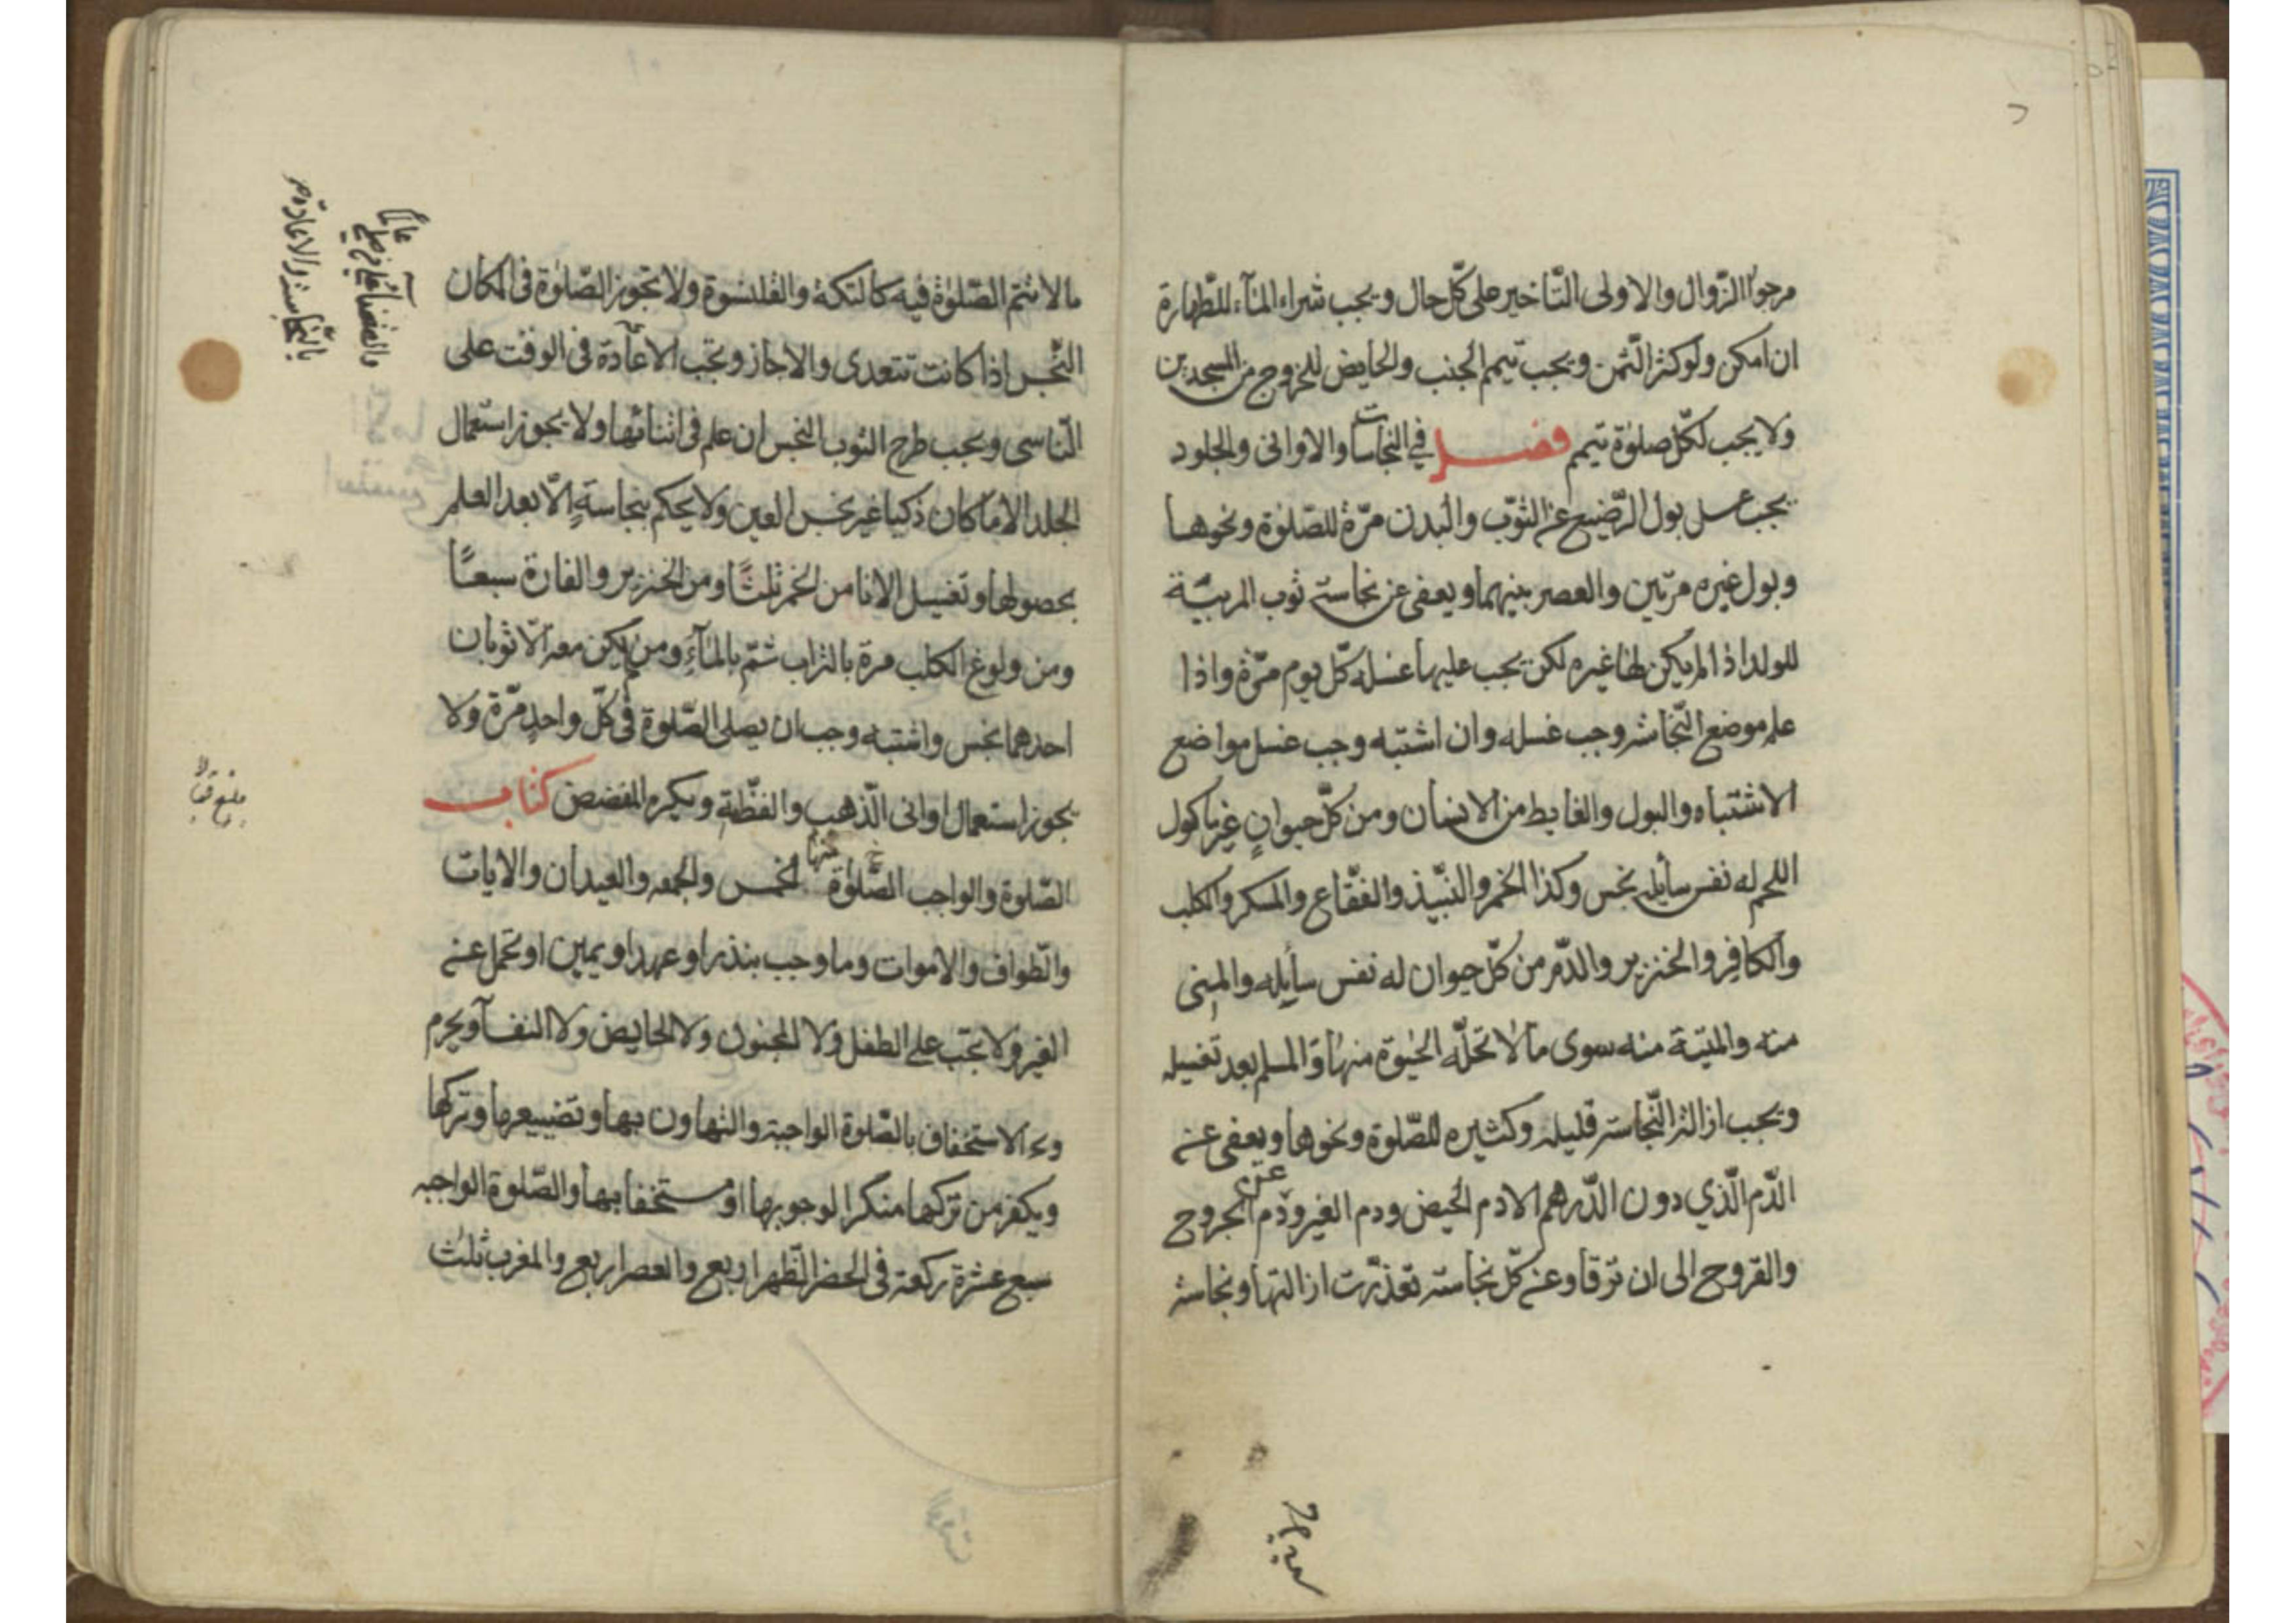 مرجوّ الزّوال والاولى التّاخير على كلّ حال ويجب شراء المآء للطّهارة
ان امكن ولو كثر الثّمن ويجب تيمم الجنب والحايض للخروج من المسجدين
ولا يجب لكلّ صلوة تيمم فصل في النجاسات والاوانى والجلود
يجب غسل بول الرّضيع عن الثوب والبدن مرّة للصّلوة ونحوها
وبول غيره مرتين والعصر بينهما ويعفى عن نجاسة ثوب المربيّة
للولد اذا لم يكن لها غيره لكن يجب عليها غسله كلّ يوم مرّة واذا
علم موضع النّجاسة وجب غسله وان اشتبه وجب غسل مواضع
الاشتباه والبول والغايط من الانسان ومن كلّ حيوانٍ غير ماكول
اللحم له نفس سائله نجس وكذا الخمر والنّبيذ والفقّاع والمسكر والكلب
والكافر والخنزير والدّم من كلّ حيوان له نفس سائله والمنى
منه والميتة منه سوى ما لا تحلّه الحيوة منها والمسلم بعد تغسيله
ويجب ازالة النّجاسة قليله وكثيره للصّلوة ونحوها ويعفى عن
الدّم الّذي دون الدّرهم الا دم الحيض ودم الغير وعن دم الجروح
والقروح الى ان ترقا وعن كلّ نجاسة تعذّرت ازالتها ونجاسة
ما لا تتم الصّلوة فيه كالتكة والقلنسوة ولا تجوز الصّلوة فى المكان
النّجس اذا كانت تتعدى والا جاز وتجب الاعادة فى الوقت على
النّاسى ويجب طرح الثوب النجس ان علم فى اثنائها ولا يجوز استعمال
الجلد الا ما كان ذكيا غير نجس العين ولا يحكم بنجاسةٍ الّا بعد العلم
بحصولها وتغسيل الانا من الخمر ثلثًا ومن الخنزير والفارة سبعًا
ومن ولوغ الكلب مرة بالتراب ثمّ بالمآءِ ومن لم يكن معه الّا ثوبان
احدهما نجس واشتبه وجب ان يصلى الصّلوة فى كلّ واحدٍ مرّة ولا
يجوز استعمال اوانى الّذهب والفضّة ويكره المفضض كتاب
الصّلوة والواجب الصّلوة منها الخمس والجمعه والعيدان والايات
والطواف والاموات وما وجب بنذر او عهد او يمين او تحمل عن
الغير ولا تجب على الطفل ولا المجنون ولا الحايض ولا النفسآ ويحرم
الاستخفاف بالصّلوة الواجبة والتهاون بها وتضييعها وتركها
ويكفر من تركها منكرا لوجوبها او مستخفا بها والصّلوة الواجبه
سبع عشرة ركعة فى الحضر الظّهر اربع والعصر اربع والمغرب ثلث